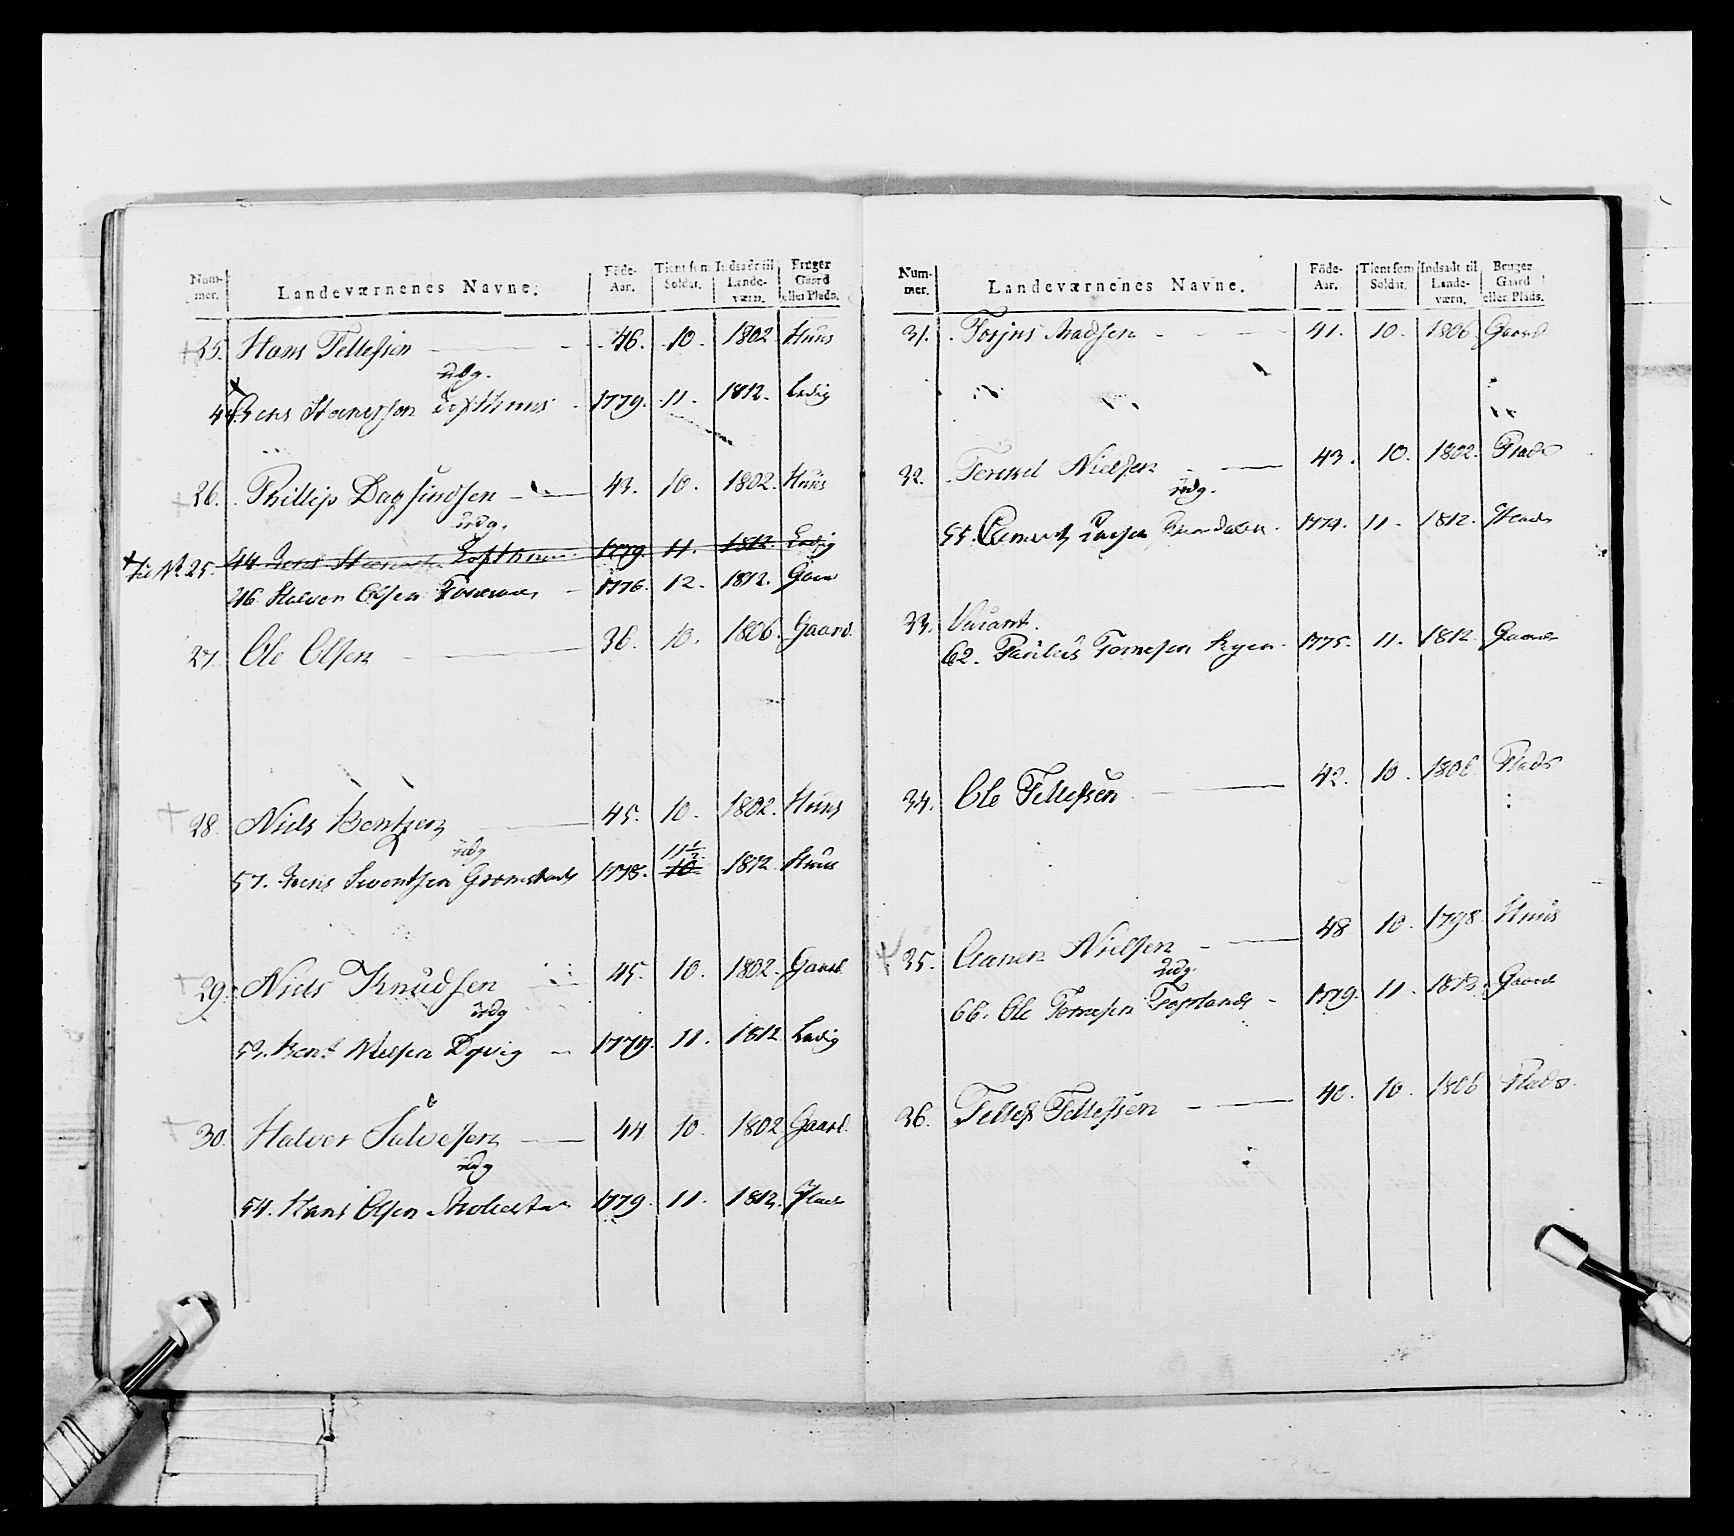 Num- mer. Landeværnenes Navne. Föde- Aar. Tient som Soldat. Indsadt til Lande- værn. Bruger Gaard eller Plads.
25. Hans Tellefsen 46. 10. 1802 Huus
udg.
44. Jens Hansen Lofthuus 1779. 11. 1812. Ledig
26. Phillip Dagfindsen 43. 10. 1802. Huus
udg.
til No 25. 44 Jens Lofthuus 1779. 11. 1812. Ledig
46. Halvor Olsen 1776. 12. 1812. Gaard
27. Ole Olsen 36. 10. 1806. Gaard.
28. Niels Bentzen 45. 10. 1802. Huus
udg
57. Jens Sventsen Gromstad 1778. 11½ 10 1812. Huus
29. Niels Knudsen 45. 10. 1802. Gaard.
udg
53. Bent Nielsen Dövig 1779. 11. 1812 Ledig
30. Halvor Salvesen 44 10. 1802 Gaard.
udg
54. Hans Olsen 1779. 11. 1812. Plads
Num- mer. Landeværnenes Navne. Föde- Aar. Tient som Soldat. Indsadt til Lande- værn. Bruger Gaard eller Plads.
31. Torjus Madsen 41. 10. 1806. Gaard
32. Terkel Nielsen 43. 10. 1802. Plads
udg.
55. 1774. 11. 1812. Plads
33. Vacant.
62. Paulus Tomesen 1775. 11. 1812 Gaard
34. Ole Tellefsen 42. 10. 1806 Plads
35. Aanen Nielsen 48 10. 1798. Huus
udg.
66. Ole Tomesen 1779. 11. Gaard
36. Tellef Tellefsen 40. 10. 1806 Plads.